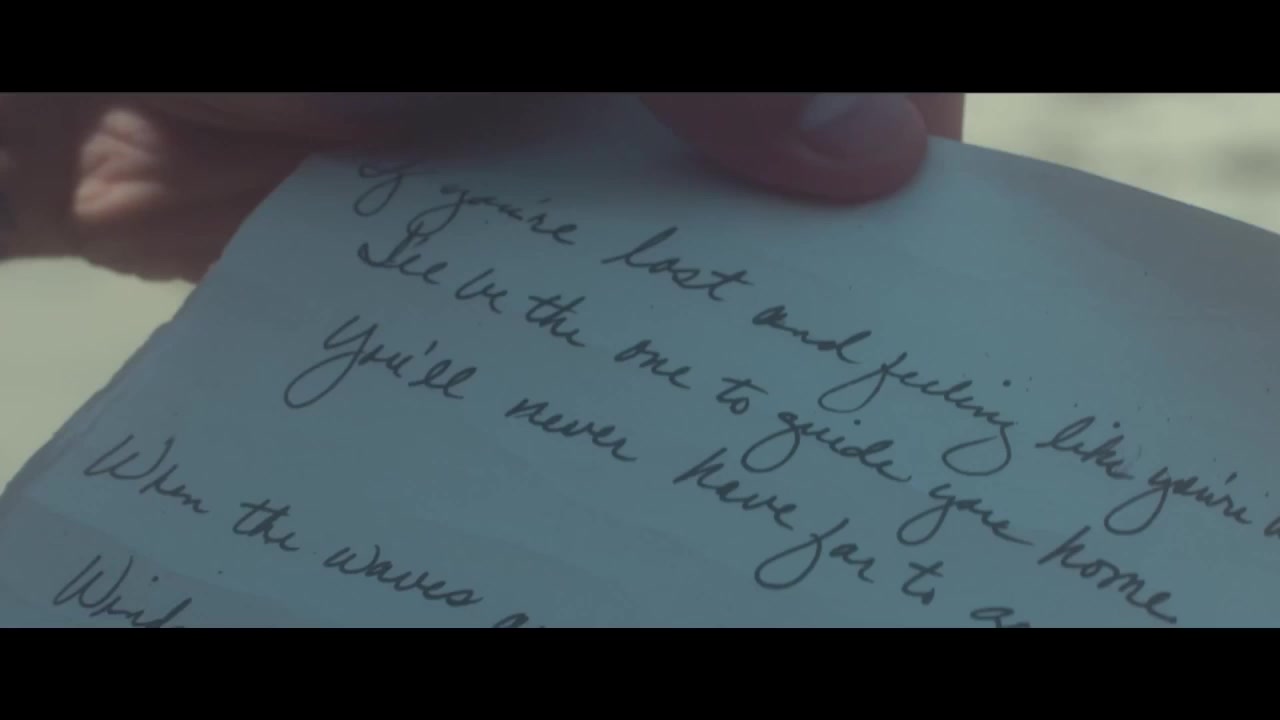 If you're lost and feeling like you're
I'll be the one to guide you home
You'll never have far to
When the waves